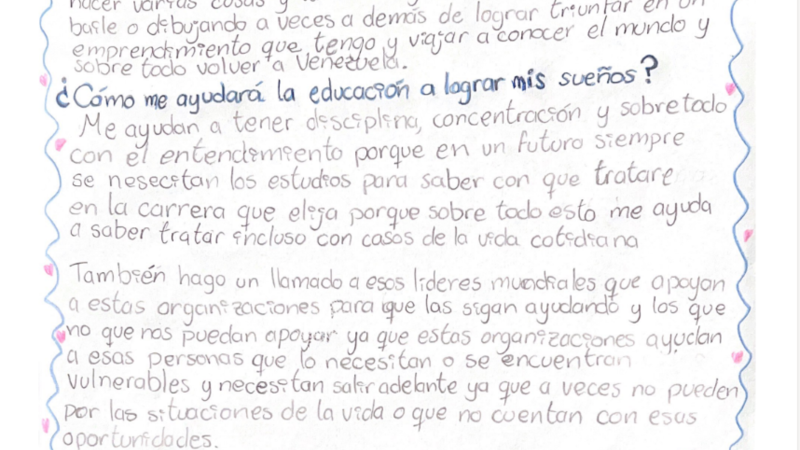 hacer varias cosas y
baile o dibujando a veces a demás de lograr triunfar en un
emprendimiento que tengo y viajar a conocer el mundo y
sobre todo volver a Venezuela.
¿Cómo me ayudará la educación a lograr mis sueños?
Me ayudan a tener disciplina, concentración y sobre todo
con el entendimiento porque en un futuro siempre
se nesecitan los estudios para saber con que tratare
en la carrera que elija porque sobre todo esto me ayuda
a saber tratar incluso con casos de la vida cotidiana
También hago un llamado a esos lideres mundiales que apoyan
a estas organizaciones para que las sigan ayudando y los que
no que nos puedan apoyar ya que estas organizaciones ayudan
a esas personas que lo necesitan o se encuentran
vulnerables y necesitan salir adelante ya que a veces no pueden
por las situaciones de la vida o que no cuentan con esas
oportunidades.